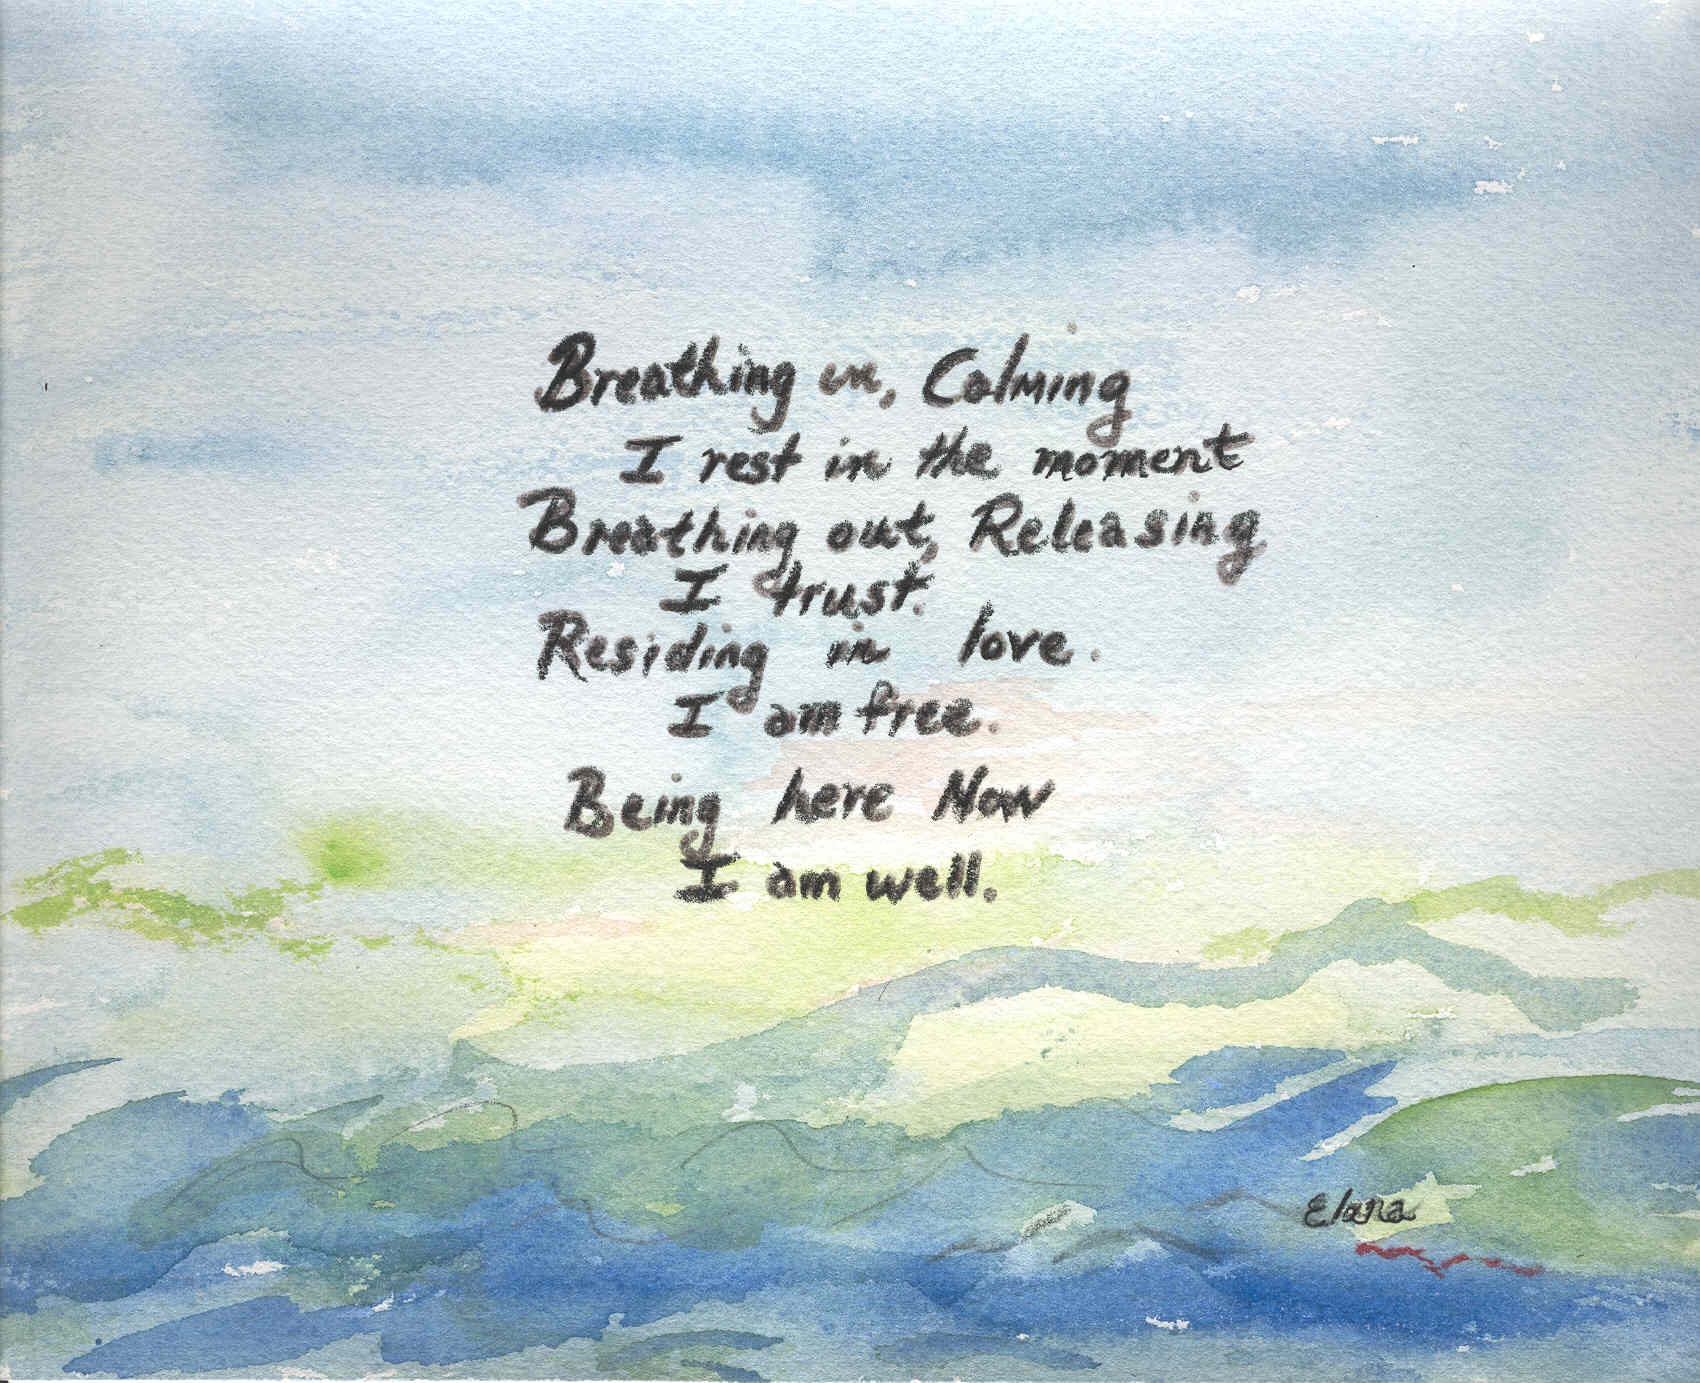 Breathing in, Calming
I rest in the moment
Breathing out, Releasing
I trust.
Residing in love.
I am free.
Being here Now
I am well.
Elana